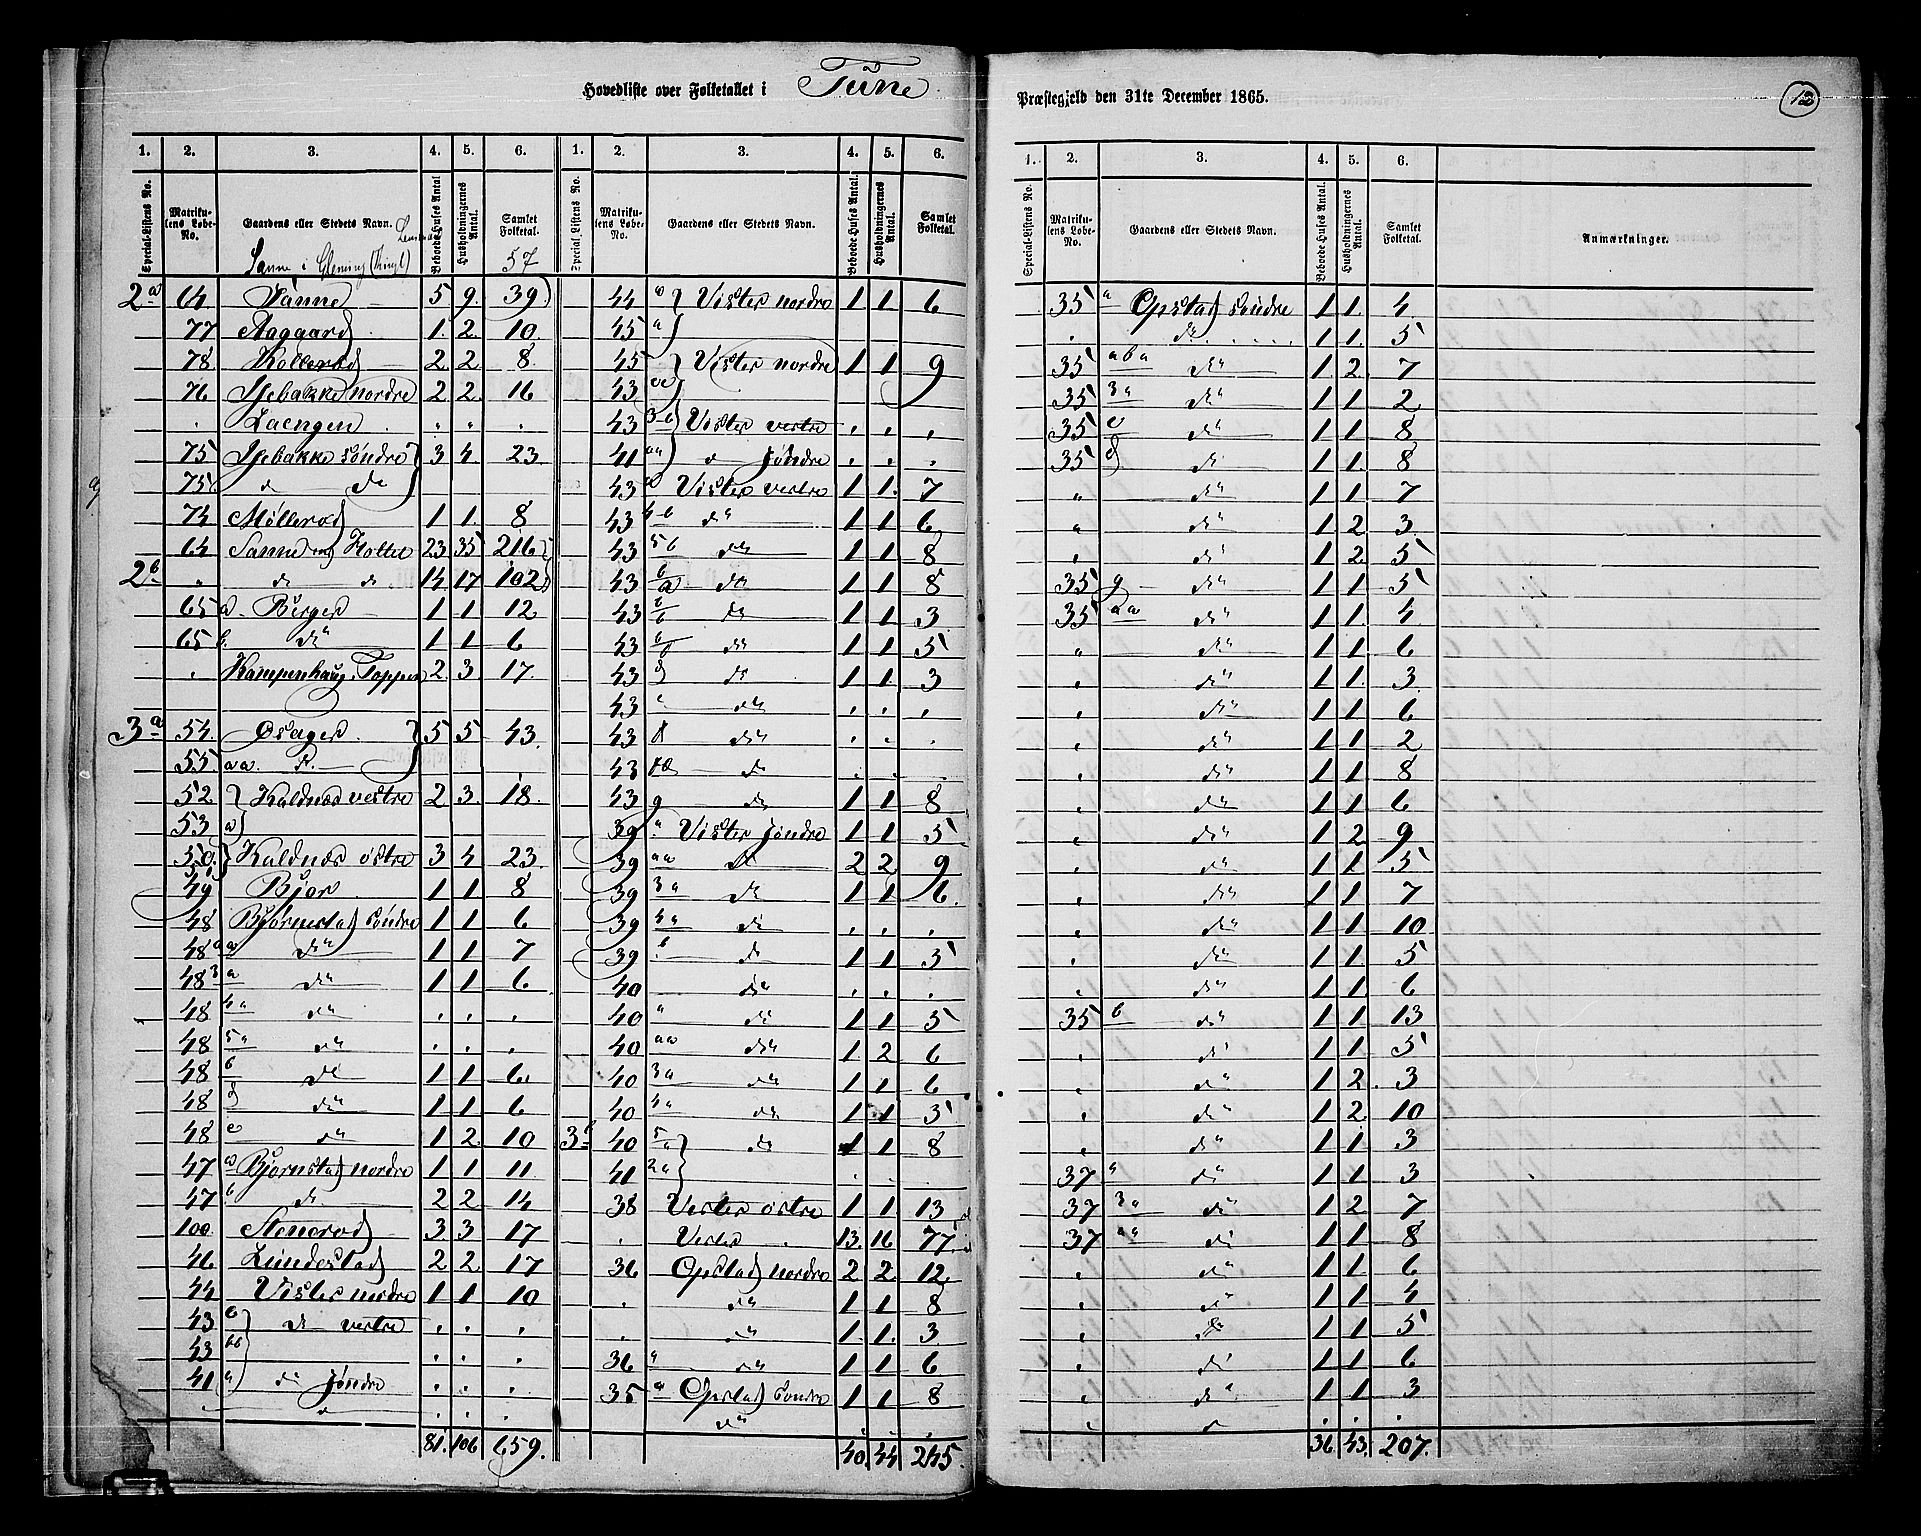 Hovedliste over Folketallet i Tune
Præstegjeld den 31te December 1865.
12
1. 2. 3. 4. 5. 6. 1. 2. 3. 4. 5. 6.
Special-Listens No. Matrikulens Løbe-No. Gaardens eller Stedets Navn. Beboede Huses Antal Husholdningernes Antal. Samlet Folketal. Special-Listens No. Matrikulens Løbe-No. Gaardens eller Stedets Navn. Beboede Huses Antal. Husholdningernes Antal. Samlet Folketal.
57
2a 64 Sanne 5 9 39
77 Aagaard 1 2 10
78 Kollerød 2 2 8
76 Isebakke nordre 2 2 16
" Laengen " " "
75 Isebakke søndre 3 4 23
75 d do
74 Møllerød 1 1 8
64 Sanne og Holtet 23 35 216
2b " do do 14 17 102
65 a Berger 1 1 12
65 b do 1 1 6
" Kampenhaug, Toppen 2 3 17
3a 54 Osager 5 5 43
55 aa do
52 Kaldnæs vestre 2 3 18
53 a
50 Kaldnæs østre 3 4 23
49 Bjør 1 1 8
48 Bjørnestad søndre 1 1 6
48 aa do 1 1 7
48 3a do 1 1 6
48 4a do " " "
48 5a do " " "
48 b do 1 1 6
48 d do 1 1 6
48 e do 1 2 10
47 a Bjørnstad nordre 1 1 11
47 b do 2 2 14
100 Stenerød 3 3 17
46 Lundestad 2 2 17
44 Vister nordre 1 1 10
43 b do vestre " " "
43 bb " " "
41 a do søndre " " "
81. 106 659.
44 a Vister nordre 1 1 6
45 a
45 Vister nordre 1 1 9
43
43 3b Vister vestre " " "
41 aa do søndre " " "
43 a Vister vestre 1 1 7
43 4b do 1 1 6
43 5b do 1 1 8
43 do 1 1 8
43 do 1 1 3
43 do 1 1 5
43 d do 1 1 3
43 do " " "
43 f do " " "
43 do " " "
43 g do 1 1 8
39 a Vister søndre 1 1 5
39 aa do 2 2 9
39 3a do 1 1 6
39 4a do " " "
39 b do 1 1 5
40 do " " "
40 a do 1 1 5
40 aa do 1 2 6
40 3a do 1 1 6
40 4a do 1 1 5
3b 40 5a do 1 1 8
41 2a
38 Vister østre 1 1 13
" Vister 13 16 77
36 Opstad nordre 2 2 12
" do 1 1 8
" do 1 1 3
36 a do 1 1 6
35 a Opstad søndre 1 1 8
do
40. 44 245
1. 2. 3. 4. 5. 6.
Special-Listens No. Matrikulens Løbe-No. Gaardens eller Stedets Navn. Beboede Huses Antal. Husholdningernes Antal. Samlet Folketal. Anmærkninger.
35 a Opstad søndre 1 1 4
" do 1 1 5
35 aba do 1 2 7
35 3a do 1 1 2
35 c do 1 1 8
35 d do 1 1 8
" do 1 1 7
" do 1 2 3
" do 1 2 5
35 g do 1 1 5
35 aa do 1 1 4
" do 1 1 6
" do 1 1 3
" do 1 1 6
" do 1 1 2
" do 1 1 8
" do 1 1 6
" do 1 2 9
" do 1 1 5
" do 1 1 7
" do 1 1 10
" do 1 1 5
" do 1 1 6
35 b do 1 1 13
" do 1 1 5
" do 1 2 3
" do 1 2 10
" do 1 1 3
37 a do 1 1 3
37 3a do 1 2 7
37 aa do 1 1 8
" do 1 1 6
" do 1 1 4
" do 1 1 5
" do 1 1 6
" do 1 1 3
36 43. 207.